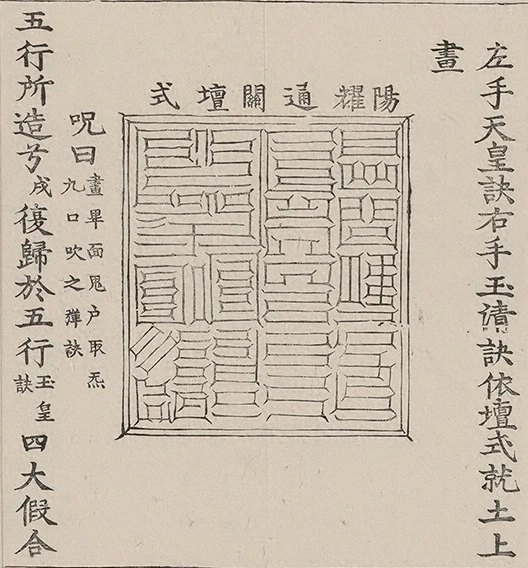 左手天皇訣右手玉清訣依壇式就土上
畫
陽耀通關壇式
呪曰
畫畢面鬼户取炁
九口吹之彈訣
五行所造兮戌復歸於五行玉皇訣四大假合